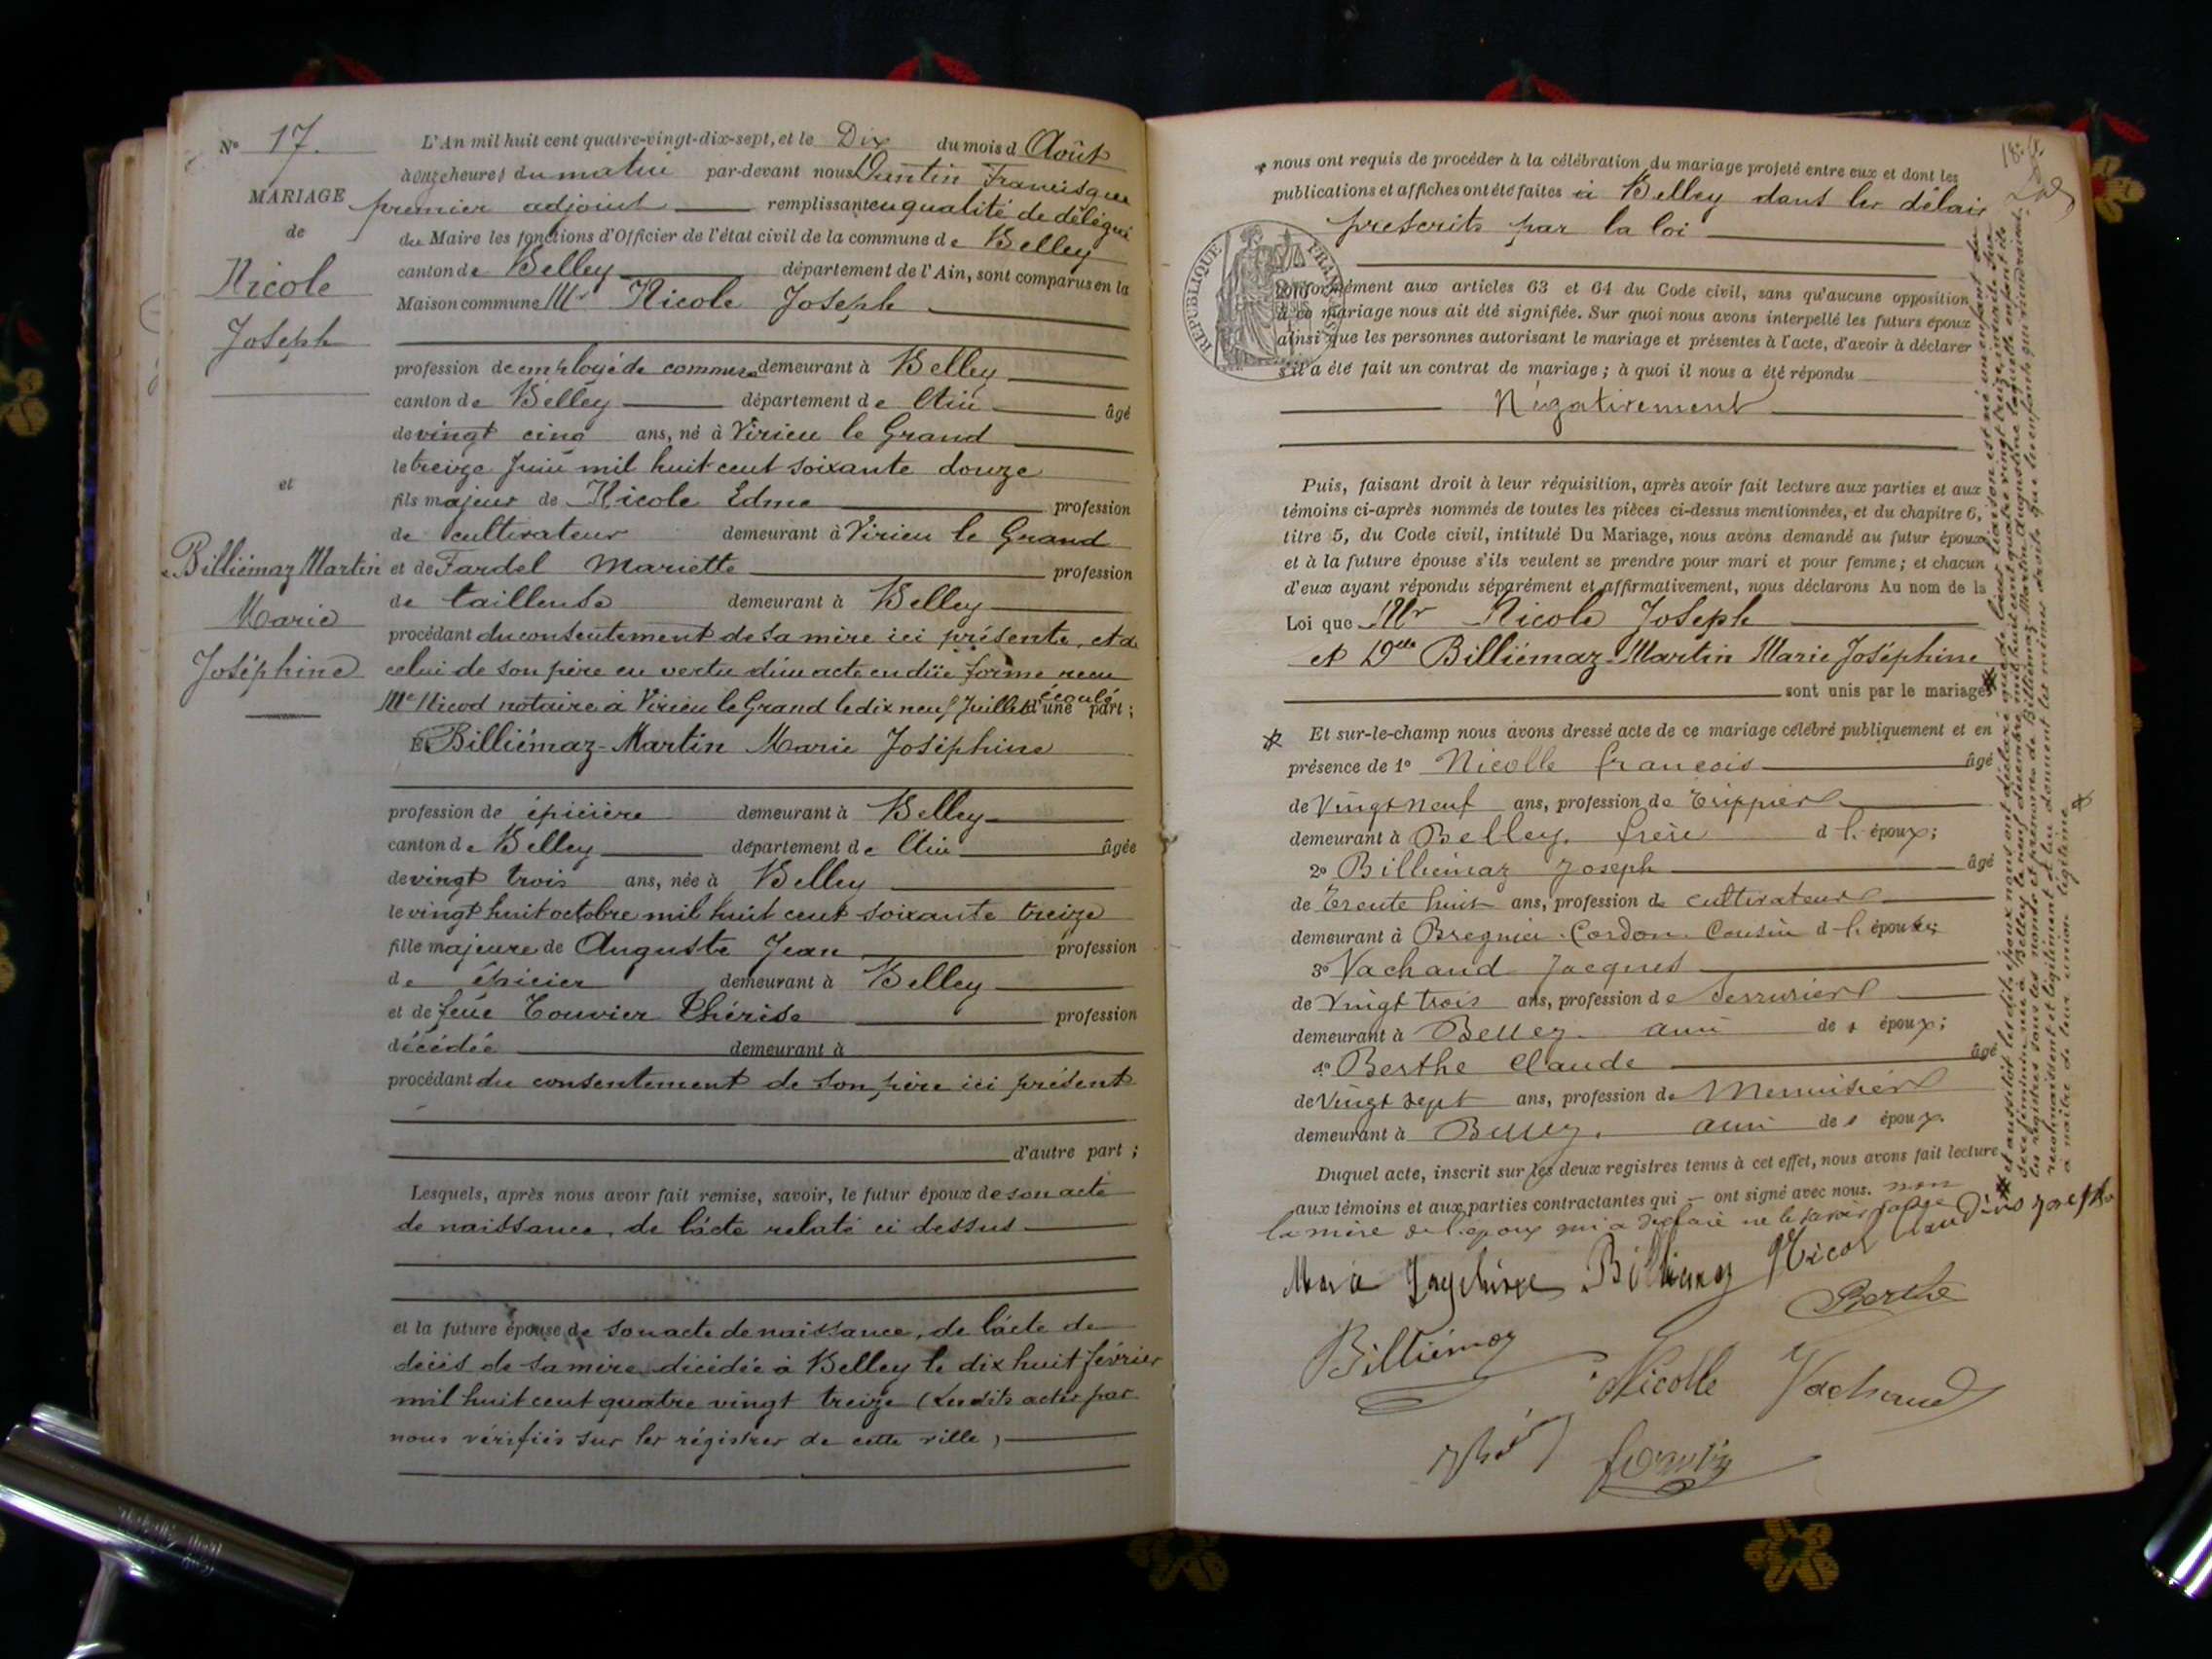 N° 17.
MARIAGE
de
Nicole
Joseph
et
Billiémaz Martin
Marie
Joséphine
L'An mil huit cent quatre-vingt-dix-sept, et le Dix du mois d Août
à onze heures du matin par-devant nous Quntin Francisque
premier adjoint remplissant en qualité de délégué
du Maire les fonctions d'Officier de l'état civil de la commune de Belley
canton de Belley département de l'Ain, sont comparus en la
Maison commune Mr Nicole Joseph
profession de employé de commerce demeurant à Belley
canton de Belley département de l'Ain âgé
de vingt cinq ans, né à Virieu le Grand
le treize Juin mil huit cent soixante douze
fils majeur de Nicole Edme profession
de cultivateur demeurant à Virieu le Grand
et de Fardel Mariette profession
de tailleuse demeurant à Belley
procédant du consentement de sa mère ici présente, et de
celui de son père en vertu d'un acte en düe forme recu
Me Nicod notaire à Virieu le Grand le dix neuf Juillet écoulé d'une part ;
Et Billiémaz-Martin Marie Joséphine
profession de épicière demeurant à Belley
canton de Belley département de l'Ain âgée
de vingt trois ans, née à Belley
le vingt huit octobre mil huit cent soixante treize
fille majeure de Auguste Jean profession
de épicier demeurant à Belley
et de feüe Touvier Thérèse profession
décédée demeurant à
procédant du consentement de son père ici présent
d'autre part ;
Lesquels, après nous avoir fait remise, savoir, le futur époux de son acte
de naissance, de l'acte relaté ci dessus
et la future épouse de son acte de naissance, de l'acte de
décès de sa mère décédée à Belley le dix huit février
mil huit cent quatre vingt treize (Lesdits actes par
nous vérifiés sur les régistres de cette ville)
nous ont requis de procéder à la célébration du mariage projeté entre eux et dont les
publications et affiches ont été faites à Belley dans les délais
prescrits par la loi
RÉPUBLIQUE FRANÇAISE
Conformément aux articles 63 et 64 du Code civil, sans qu'aucune opposition
à ce mariage nous ait été signifiée. Sur quoi nous avons interpellé les futurs époux
ainsi que les personnes autorisant le mariage et présentes à l'acte, d'avoir à déclarer
s'il a été fait un contrat de mariage ; à quoi il nous a été répondu
Négativement
Puis, faisant droit à leur réquisition, après avoir fait lecture aux parties et aux
témoins ci-après nommés de toutes les pièces ci-dessus mentionnées, et du chapitre 6,
titre 5, du Code civil, intitulé Du Mariage, nous avons demandé au futur époux
et à la future épouse s'ils veulent se prendre pour mari et pour femme ; et chacun
d'eux ayant répondu séparément et affirmativement, nous déclarons Au nom de la
Loi que Mr Nicole Joseph
et Delle Billiémaz-Martin Marie Joséphine
sont unis par le mariage
Et sur-le-champ nous avons dressé acte de ce mariage célébré publiquement et en
présence de 1° Nicolle francois âgé
de vingt neuf ans, profession de Trippier
demeurant à Belley. frère d l. époux;
2° Billiémaz Joseph âgé
de Trente huit ans, profession de cultivateur
demeurant à Bregnier-Cordon. Cousin d l. épouse;
3° Vachaud Jacques
de vingt trois ans, profession de Serrurier
demeurant à Belley. ami de s époux;
4° Berthe Claude âgé
de vingt sept ans, profession de Menuisier
demeurant à Belley. ami de s époux.
Duquel acte, inscrit sur les deux registres tenus à cet effet, nous avons fait lecture
aux témoins et aux parties contractantes qui — ont signé avec nous. non
la mère de l'époux qui a déclaré ne le savoir
et aussitôt les dits époux nous ont déclaré que de leur liaison est né un enfant du
sexe féminin, né à Belley le neuf décembre mil huit cent quatre vingt treize, inscrit sur
les registres sous les noms et prénoms de Billiémaz-Martin Augustine laquelle enfant ils
reconnaissent et légitiment et lui donnent les mêmes droits que les enfants qui viendraient
à naître de leur union légitime
Billiémaz
Berthe
Billiémaz
Nicolle
Vachaud